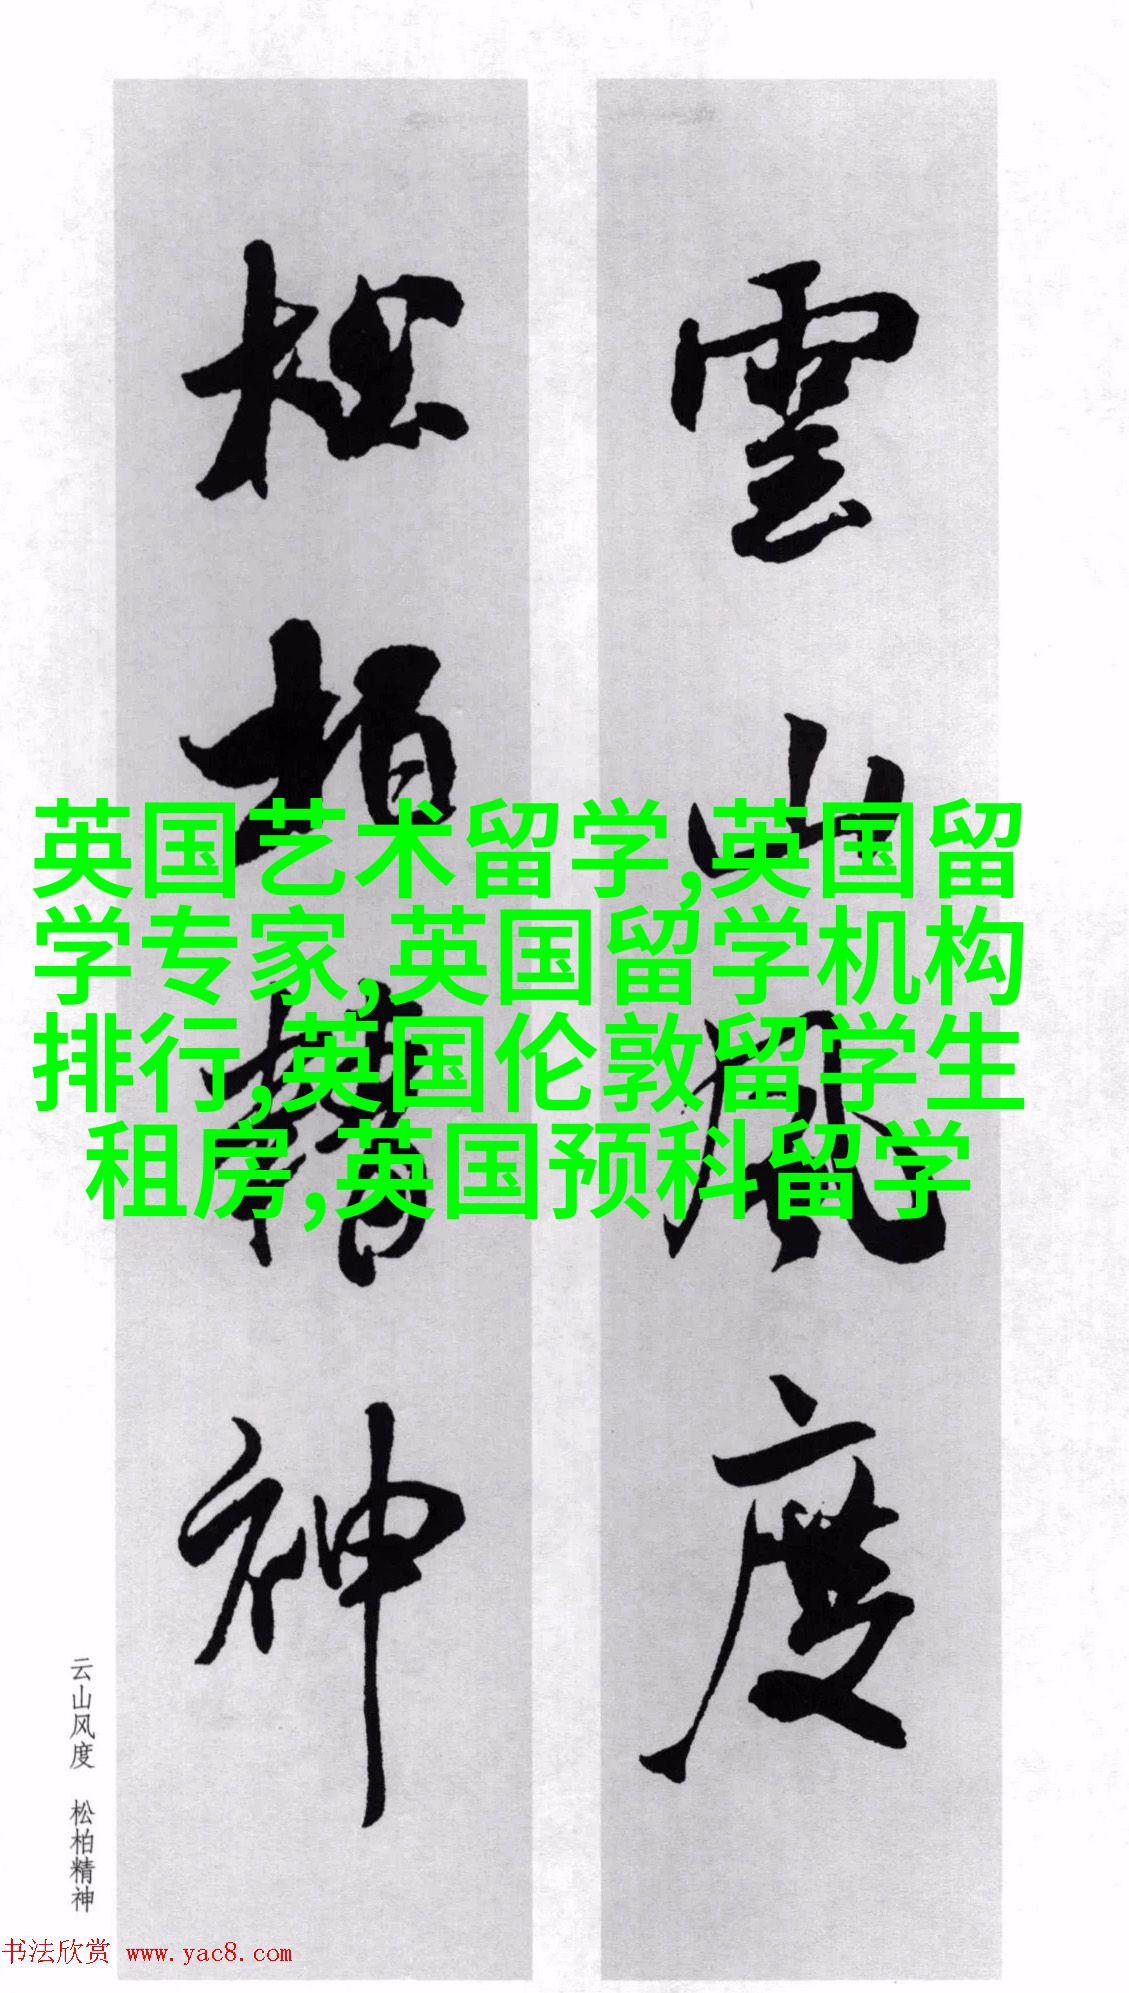 雲山風度
松柏精神
英国艺术留学,英国留
学专家,英国留学机构
排行,英国伦敦留学生
租房,英国预科留学
云山风度 松柏精神
书法欣赏 www.yac8.com